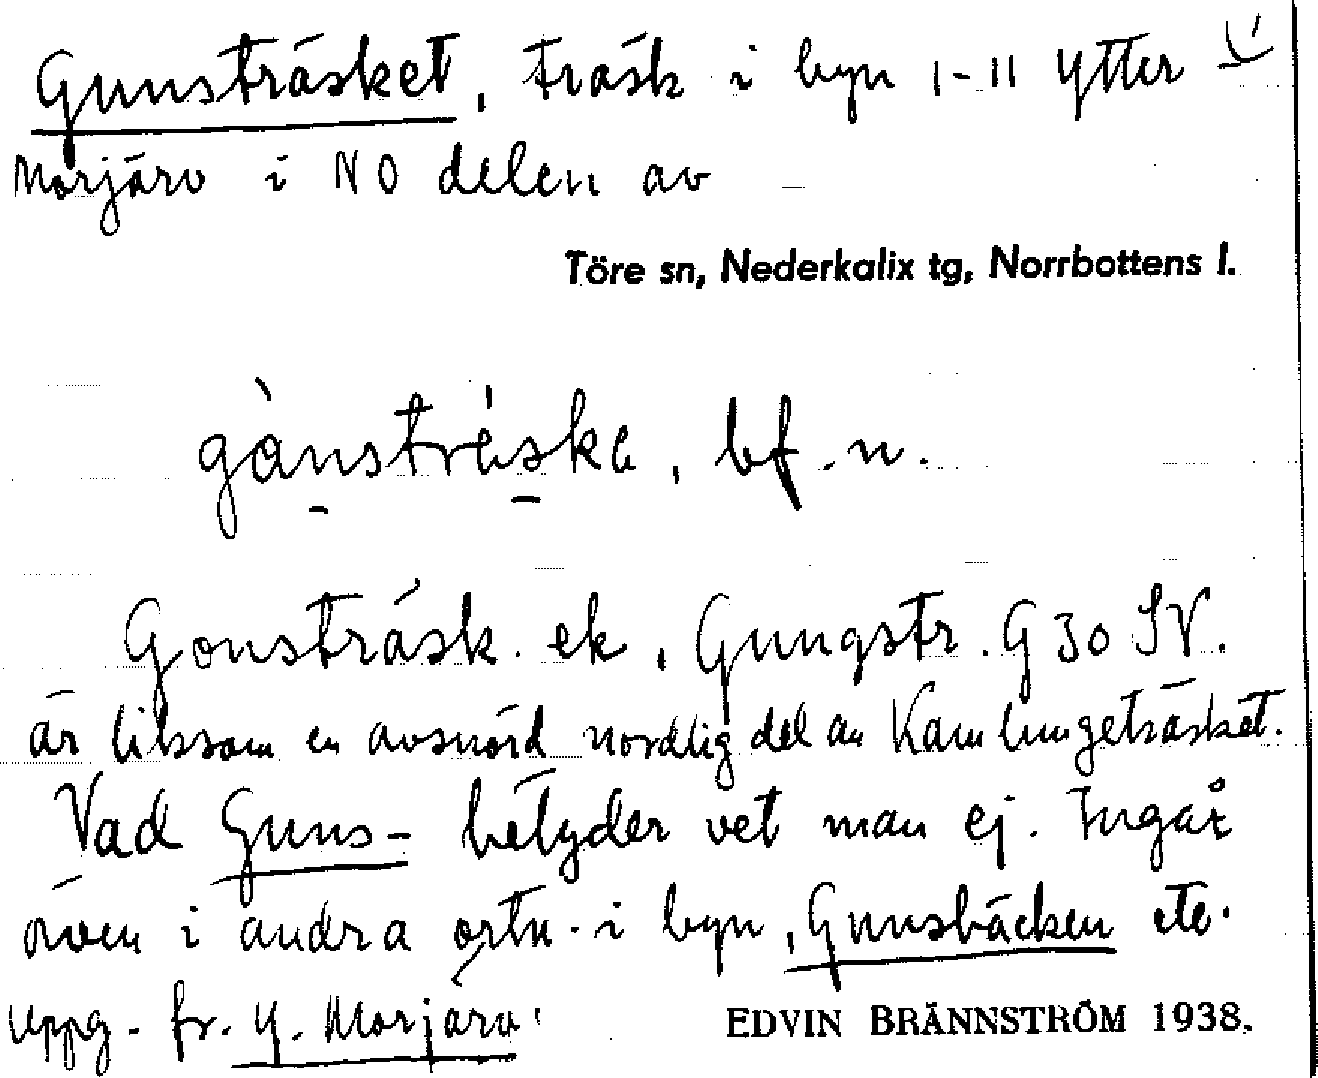 Gunsträsket, träsk i byn 1-11 Ytter
Morjärv i NO delen av
Töre sn, Nederkalix tg, Norrbottens l.
gånstrèska, bf. n.
Gonsträsk ek, Gungstr. G 30 SV.
är liksom en avsnörd nordlig del av Kamlungeträsket.
Vad Guns- betyder vet man ej. Ingår
även i andra ortn. i byn, Gunsbäcken etc.
Uppg. fr. Y. Morjärv.
EDVIN BRÄNNSTRÖM 1938.